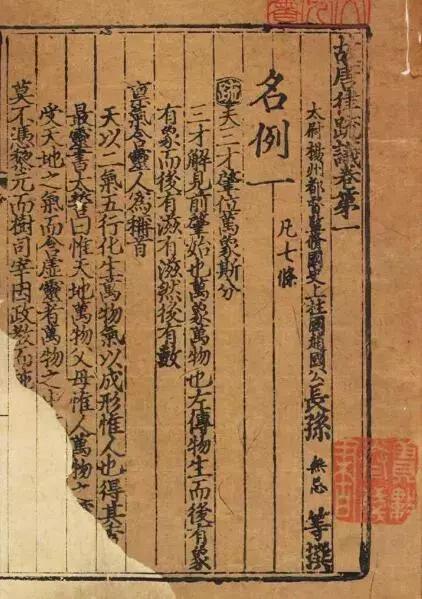 故唐律疏議卷第一
太尉揚州都督監脩國史上柱國趙國公長孫無忌等撰
名例一 凡七條
疏夫三才肇位萬象斯分
三才解見前肇始也萬象萬物也左傳物生而後有象
有象而後有滋有滋然後有數
稟氣含靈人為稱首
天以二氣五行化生萬物氣以成形惟人也得其秀
最靈書太誓曰惟天地萬物父母惟人萬物之
受天地之氣而含虛靈者萬物之
莫不憑黎元而樹司宰因政教而施